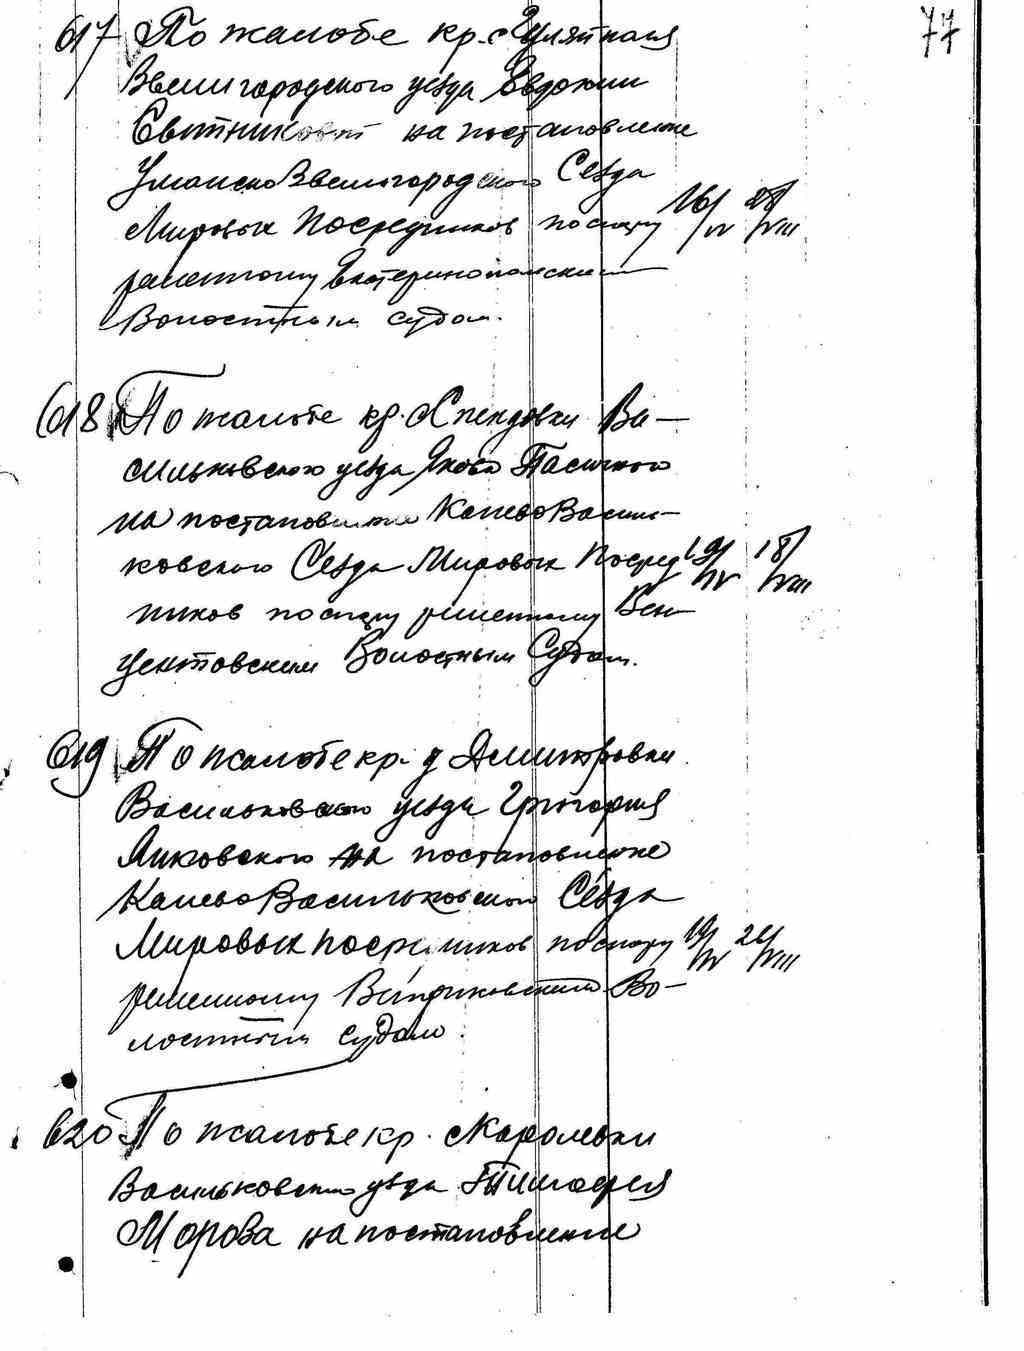 77
617 По жалобе кр. с Гуляйполя
Звенигородского уезда Евдокии
на постановление
Уманско Звенигородского Сезда
Мировых Посредников по спору 16/IV 28/VIII
решенному Екатеринопольским
Волостным судом.
618 По жалобе кр. с Спендовки Ва-
сильковского уезда Якова Пасичного
на постановление Канево Василь-
ковского Сезда Мировых Посред 19/IV 18/VIII
ников по спору решенному Вен
центовским Волостным Судом.
619 По жалобе кр. д Дмитровки
Васильковского уезда Григория
Янковского на постановление
Канево Васильковского Сезда
Мировых посредников по спору 19/IV 26/VIII
решенному Во-
лостным судом.
620 По жалобе кр. с Каролевки
Васильковского уезда Тимофея
Морова на постановление